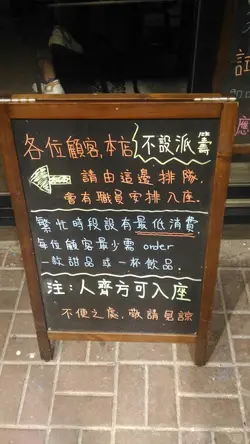 各位顧客，本店不設派籌
請由這邊排隊，
會有職員安排入座。
繁忙時段設有最低消費，
每位顧客最少需 order
一款甜品或一杯飲品。
注：人齊方可入座
不便之處，敬請見諒
試
應